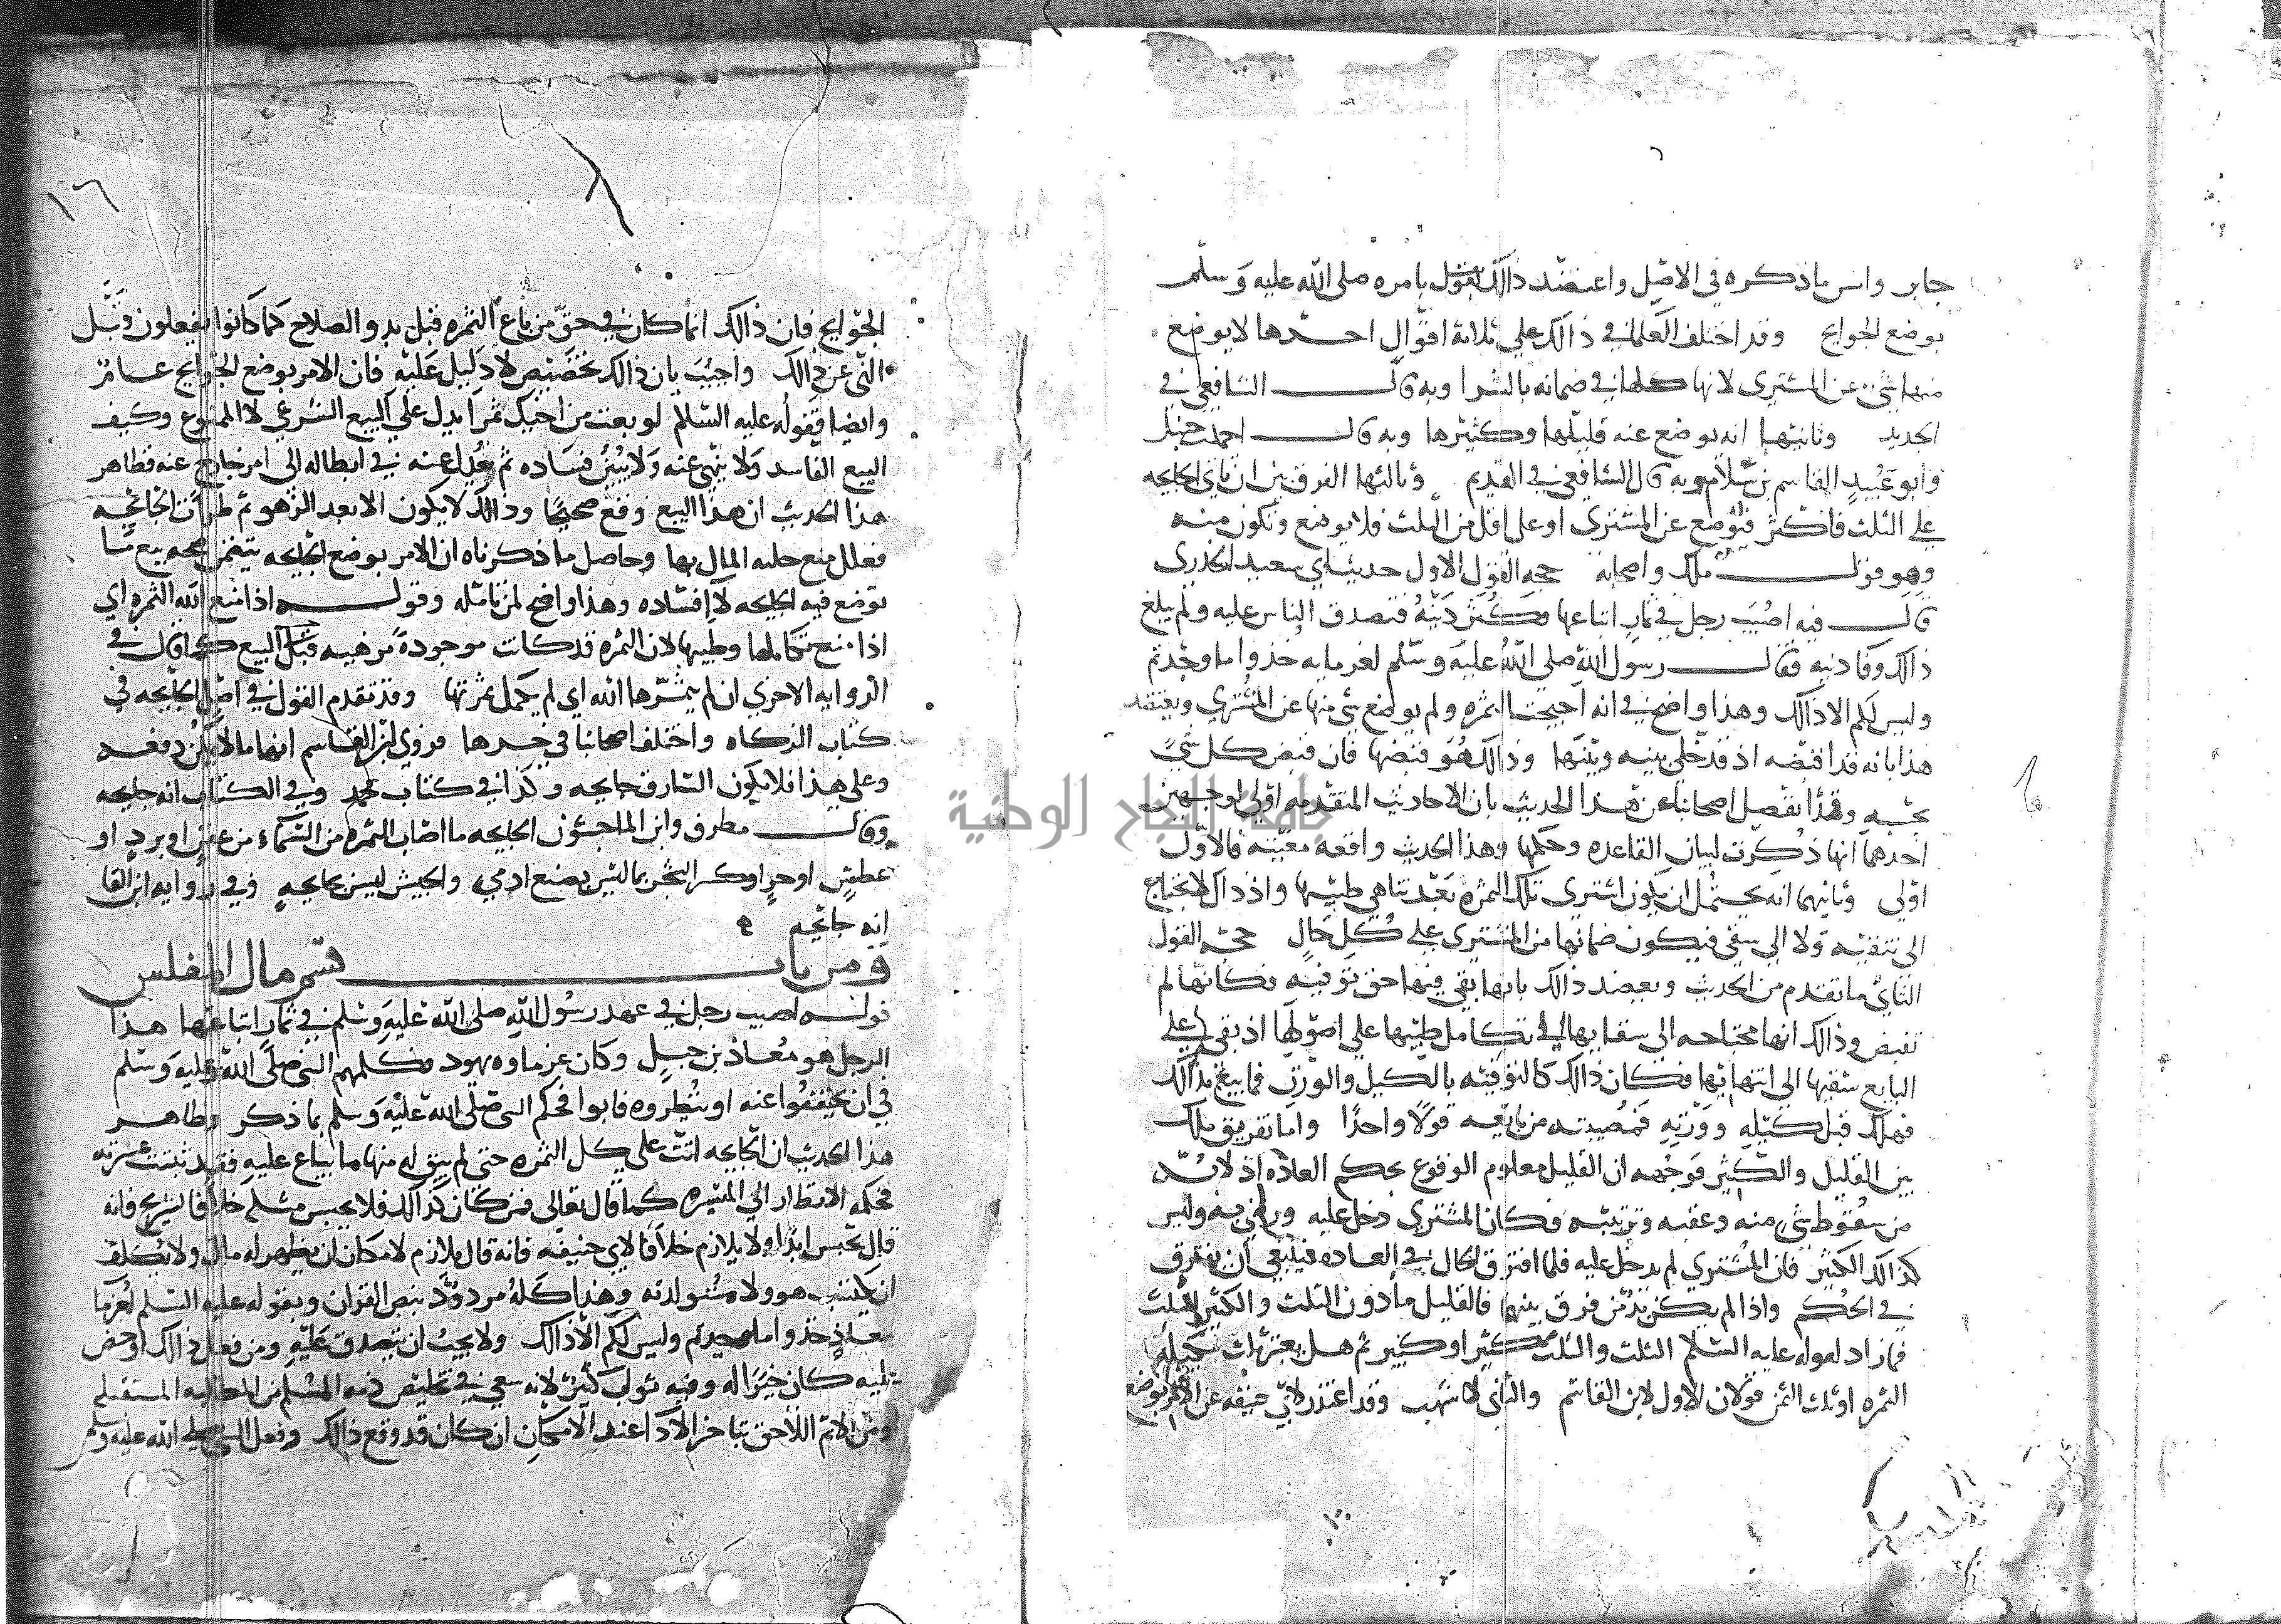 جابر وانس ما ذكره في الاصل واعتضد ذالك بقول بامره صلى الله عليه وسلم
بوضع الجوايح وقد اختلف العلما في ذالك على ثلاثة اقوال احدها لا يوضع
منها شيء عن المشتري لانها كلها في ضمانه بالشرا وبه قال الشافعي في
الجديد وثانيها انه يوضع عنه قليلها وكثيرها وبه قال احمد بن حنبل
وابو عبيد القاسم بن سلام وبه قال الشافعي في القديم وثالثها الفرق بين ان تاتي الجايحه
على الثلث فاكثر فتوضع عن المشتري او على اقل من الثلث فلا يوضع وتكون منه
وهو قول ملك واصحابه حجه القول الاول حديث ابي سعيد الخدري
قال فيه اصيب رجل في ثمار ابتاعها فكثر دينه فتصدق الناس عليه ولم يبلغ
ذالك وفا دينه فقال رسول الله صلى الله عليه وسلم لغرمايه خذوا ما وجدتم
وليس لكم الا ذالك وهذا واضح في انه اجيحت الثمره ولم يوضع شي منها عن المشتري ويعتضد
هذا بانه قد اقبضه اذ قد خلى بينه وبينها وذالك هو قبضها فان قبض كل شيء
بحسبه وقد انفصل اصحابنا عن هذا الحديث بان الاحاديث المتقدمه اولى لوجهين
احدهما انها ذكرت لبيان القاعده وحكمها وهذا الحديث واقعه معينه فالاول
اولى وثانيهما انه يحتمل ان يكون اشترى تلك الثمره بعد تناهي طيبها واذ ذاك لا يحتاج
الى تنقيته ولا الى سقي فيكون ضمانها من المشتري على كل حال حجه القول
الثاني ما تقدم من الحديث ويعضد ذالك بانها بقي فيها حق توفيه فكانها لم
تقبض وذالك انها محتاجه الى سقايها الى تكامل طيبها على اصولها اذ بقي على
البايع سقيها الى انتهايها فكان ذالك كالتوفيه بالكيل والوزن فما بيع بذالك
فهلك قبل كيله ووزنه فمصيبته من بايعه قولا واحدا واما تفريق ملك
بين القليل والكثير فوجهه ان القليل معلوم الوقوع بحكم العاده اذ لا بد
من سقوط شيء منه وعفنه وتربته فكان المشتري دخل عليه ورضي به وليس
كذالك الكثير فان المشتري لم يدخل عليه فلما افترق الحال في العاده فينبغي ان يفترق
في الحكم واذا لم يكن بد من فرق بينهما فالقليل ما دون الثلث والكثير الثلث
فما زاد لقوله عليه السلام الثلث والثلث كثير او كبير ثم هل يعتبر ثلث
الثمره او ثلث الثمن قولان الاول لابن القاسم والثاني لاشهب وقد اعتذر لابي حنيفه عن الامر بوضع
١٦
الجوايح فان ذالك انما كان في حق من باع الثمره قبل بدو الصلاح كما كانوا يفعلون قبل
النهي عن ذالك واجيب بان ذالك تخصيص لا دليل عليه فان الامر بوضع الجوايح عام
وايضا فقوله عليه السلام لو بعت من اخيك ثمرا يدل على البيع الشرعي لا الممنوع وكيف
البيع الفاسد ولا ينهى عنه ولا يبين فساده ثم يعدل عنه في ابطاله الى امر خارج عنه فظاهر
هذا الحديث ان هذا البيع وقع صحيحا وذالك لا يكون الا بعد الزهو ثم طرات الجايحه
فعلل منع حليه المال بها وحاصل ما ذكرناه ان الامر بوضع الجايحه يتضمن صحه بيع ما
توضع فيه الجايحه لا افساده وهذا واضح لمن تامله وقوله اذا منع الله الثمره اي
اذا منع تكاملها وطيبها لان الثمره قد كانت موجودة مزهيه قبل البيع كما قال في
الروايه الاخرى ان لم يثمرها الله اي لم يكمل ثمرتها وقد تقدم القول في اصل الجايحه في
كتاب الزكاه واختلف اصحابنا في حدها فروى ابن القاسم انها ما لا يمكن دفعه
وعلى هذا فلا يكون السارق جايحه وكذا في كتاب محمد وفي الكتاب انه جايحه
وقال مطرف وابن الماجشون الجايحه ما اصاب الثمره من السماء من عفن او برد او
عطش او حر او كسر الشجر بما ليس بصنع ادمي والجيش ليس بجايحه وفي روايه ابن القا
انه جايحه
ومن باب قسم مال المفلس
قوله اصيب رجل في عهد رسول الله صلى الله عليه وسلم في ثمار ابتاعها هذا
الرجل هو معاذ بن جبل وكان غرماوه يهود فكلمهم النبي صلى الله عليه وسلم
في ان يخففوا عنه او ينظروه فابوا فحكم النبي صلى الله عليه وسلم بما ذكر وظاهر
هذا الحديث ان الجايحه اتت على كل الثمره حتى لم يبق له منها ما يباع عليه فقد ثبتت عسرته
فحكمه الانتظار الى الميسره كما قال تعالى فمن كان كذالك فلا يحبس مثله خلافا لشريح فانه
قال يحبس ابدا ولا يلازم خلافا لابي حنيفه فانه قال يلازم لامكان ان يظهر له مال ولا يكلف
ان يكتسب هو ولا مستولدته وهذا كله مردود بنص القران وبقوله عليه السلم لغرما
معاذ خذوا ما وجدتم وليس لكم الا ذالك ولا يجب ان يتصدق عليه ومن فعل ذالك او حض
عليه كان خيرا له وفيه ثواب كثير لانه سعي في تخليص ذمه المسلم من المطالبه المستقبله
ومن الاثم اللاحق بتاخر الادا عند الامكان ان كان قد وقع ذالك وفعل النبي صلى الله عليه وسلم
جامعة النجاح الوطنية